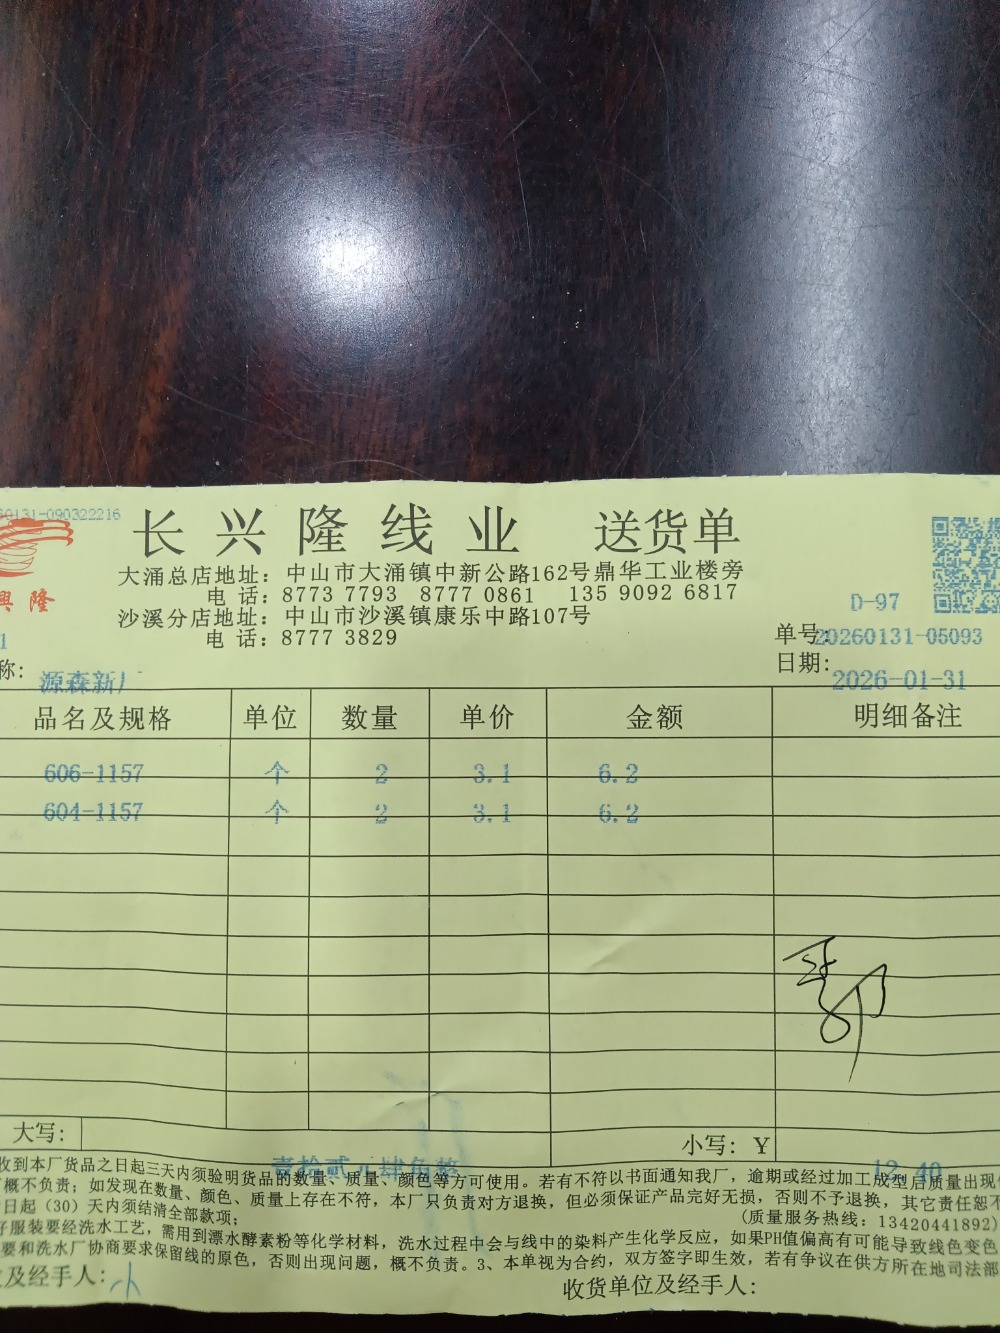 60131-090322216
长兴隆线业 送货单
興隆
大涌总店地址：中山市大涌镇中新公路162号鼎华工业楼旁
电 话：8773 7793 8777 0861 135 9092 6817
沙溪分店地址：中山市沙溪镇康乐中路107号
电 话：8777 3829
D-97
单号：20260131-05093
称：源森新厂
日期：2026-01-31
品名及规格 单位 数量 单价 金额 明细备注
606-1157 个 2 3.1 6.2
604-1157 个 2 3.1 6.2
大写：壹拾贰元肆角整 小写：￥12.40
收到本厂货品之日起三天内须验明货品的数量、质量、颜色等方可使用。若有不符以书面通知我厂，逾期或经过加工成型后质量出现
概不负责；如发现在数量、颜色、质量上存在不符，本厂只负责对方退换，但必须保证产品完好无损，否则不予退换，其它责任恕不
日起（30）天内须结清全部款项； （质量服务热线：13420441892）
好服装要经洗水工艺，需用到漂水酵素粉等化学材料，洗水过程中会与线中的染料产生化学反应，如果PH值偏高有可能导致线色变色
要和洗水厂协商要求保留线的原色，否则出现问题，概不负责。3、本单视为合约，双方签字即生效，若有争议在供方所在地司法部
及经手人：小 收货单位及经手人：